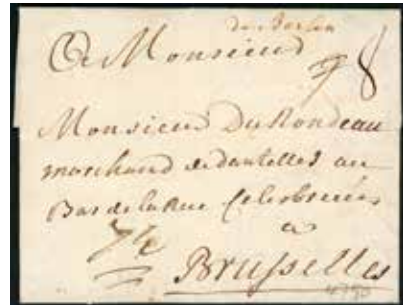 de Berlin
A Monsieur
8
Monsieur Du Rondeau
marchand de dantelles au
Bas de la Rue
a
Brusselles